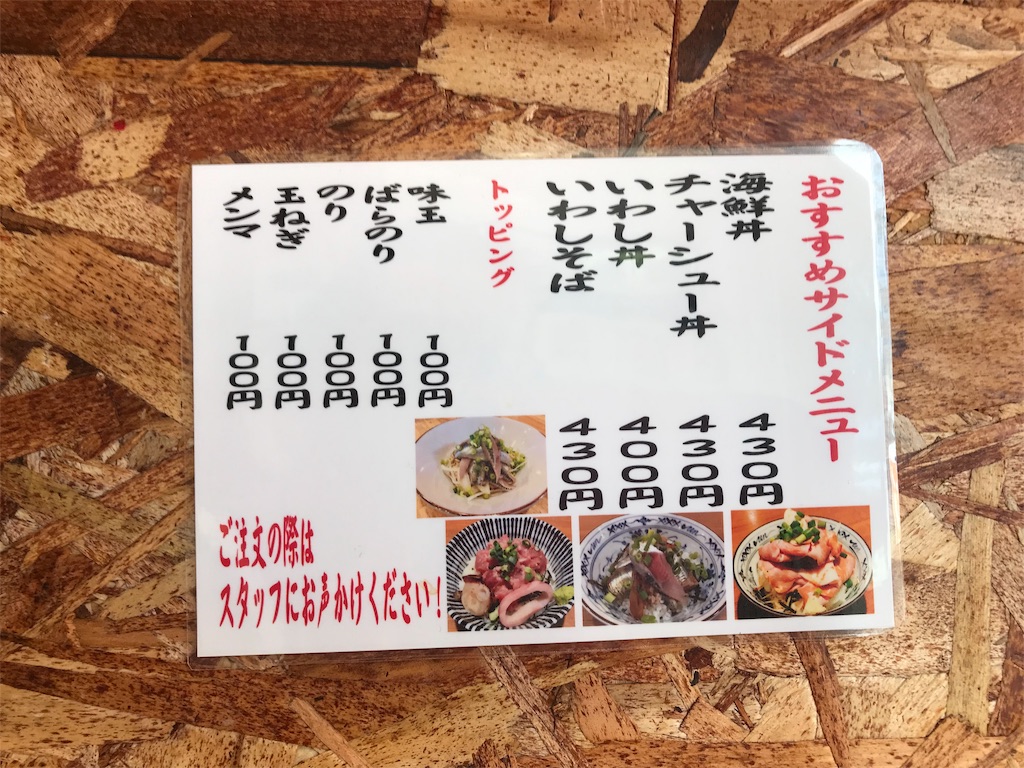 おすすめサイドメニュー
海鮮丼 430円
チャーシュー丼 430円
いわし丼 400円
いわしそば 430円
トッピング
味玉 100円
ばらのり 100円
のり 100円
玉ねぎ 100円
メンマ 100円
ご注文の際は
スタッフにお声かけください!